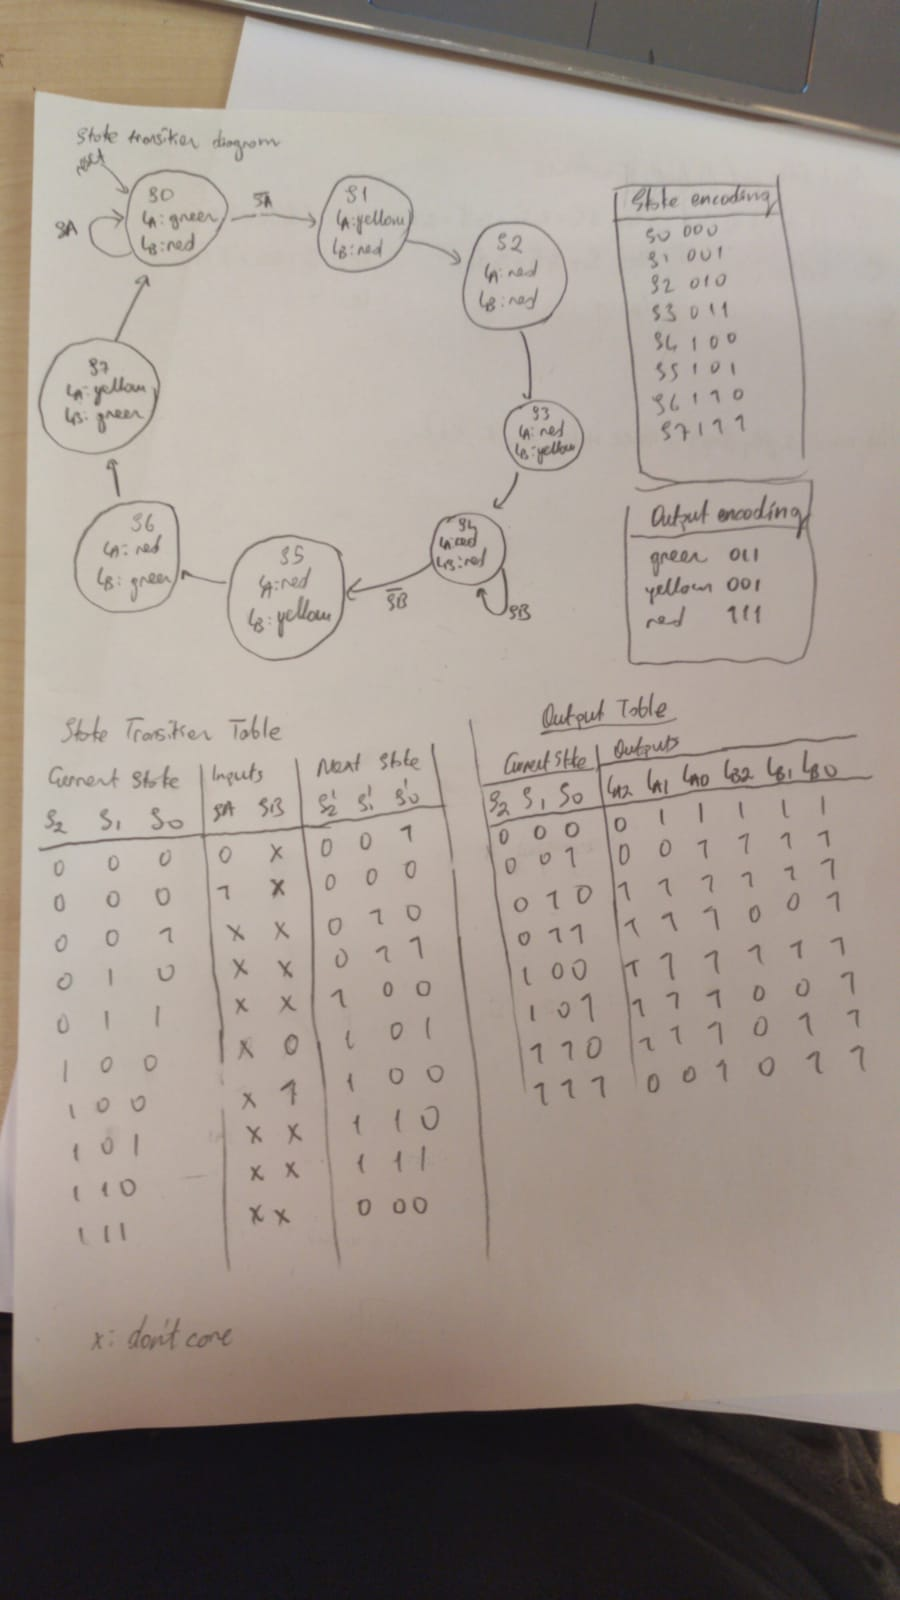 State transition diagram
reset
S0
LA: green
LB: red
SA
S̅A̅
S1
LA: yellow
LB: red
S2
LA: red
LB: red
S3
LA: red
LB: yellow
S4
LA: red
LB: red
SB
S̅B̅
S5
LA: red
LB: yellow
S6
LA: red
LB: green
S7
LA: yellow
LB: green
State encoding
S0 000
S1 001
S2 010
S3 011
S4 100
S5 101
S6 110
S7 111
Output encoding
green 011
yellow 001
red 111
State Transition Table
Current State Inputs Next State
S2 S1 S0 SA SB S2' S1' S0'
0 0 0 0 x 0 0 1
0 0 0 1 x 0 0 0
0 0 1 x x 0 1 0
0 1 0 x x 0 1 1
0 1 1 x x 1 0 0
1 0 0 x 0 1 0 1
1 0 0 x 1 1 0 0
1 0 1 x x 1 1 0
1 1 0 x x 1 1 1
1 1 1 x x 0 0 0
x: don't care
Output Table
Current State Outputs
S2 S1 S0 LA2 LA1 LA0 LB2 LB1 LB0
0 0 0 0 1 1 1 1 1
0 0 1 0 0 1 1 1 1
0 1 0 1 1 1 1 1 1
0 1 1 1 1 1 0 0 1
1 0 0 1 1 1 1 1 1
1 0 1 1 1 1 0 0 1
1 1 0 1 1 1 0 1 1
1 1 1 0 0 1 0 1 1